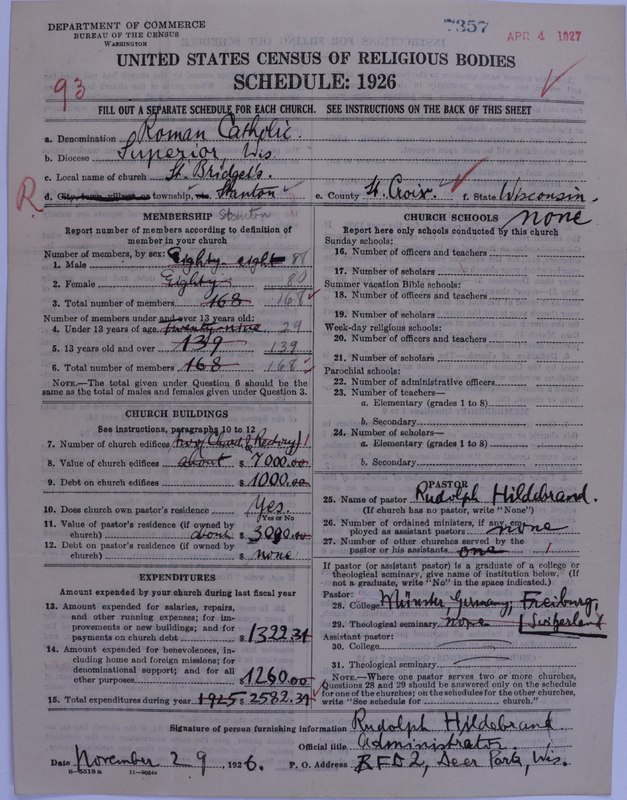 DEPARTMENT OF COMMERCE
BUREAU OF THE CENSUS
WASHINGTON
7357
APR 4 1927
UNITED STATES CENSUS OF RELIGIOUS BODIES
SCHEDULE: 1926
93
FILL OUT A SEPARATE SCHEDULE FOR EACH CHURCH. SEE INSTRUCTIONS ON THE BACK OF THIS SHEET
a. Denomination Roman Catholic.
b. Diocese Superior, Wis.
c. Local name of church St. Bridget's.
R d. City, town, village, or township, etc. Stanton e. County St. Croix. f. State Wisconsin.
MEMBERSHIP Stanton
Report number of members according to definition of
member in your church
Number of members, by sex:
1. Male Eighty-eight 88
2. Female Eighty 80
3. Total number of members 168 168
Number of members under and over 13 years old:
4. Under 13 years of age twenty-nine 29
5. 13 years old and over 139 139
6. Total number of members 168 168
NOTE.—The total given under Question 6 should be
same as the total of males and females given under Question 3.
CHURCH BUILDINGS
See instructions, paragraphs 10 to 12
7. Number of church edifices two (Church & Rectory) 1
8. Value of church edifices about $ 7000.00
9. Debt on church edifices $ 1000.00
10. Does church own pastor's residence Yes.
(Yes or No
11. Value of pastor's residence (if owned by
church) about $ 3000.00
12. Debt on pastor's residence (if owned by
church) $ none
EXPENDITURES
Amount expended by your church during last fiscal year
13. Amount expended for salaries, repairs,
and other running expenses; for im-
provements or new buildings; and for
payments on church debt $ 1322.31
14. Amount expended for benevolences, in-
cluding home and foreign missions; for
denominational support; and for all
other purposes $ 1260.00
15. Total expenditures during year 1925 $ 2582.31
CHURCH SCHOOLS none
Report here only schools conducted by this church
Sunday schools:
16. Number of officers and teachers
17. Number of scholars
Summer vacation Bible schools:
18. Number of officers and teachers
19. Number of scholars
Week-day religious schools:
20. Number of officers and teachers
21. Number of scholars
Parochial schools:
22. Number of administrative officers
23. Number of teachers—
a. Elementary (grades 1 to 8)
b. Secondary
24. Number of scholars—
a. Elementary (grades 1 to 8)
b. Secondary
PASTOR
25. Name of pastor Rudolph Hildebrand.
(If church has no pastor, write "None")
26. Number of ordained ministers, if any, em-
ployed as assistant pastors none
27. Number of other churches served by the
pastor or his assistants one 1
If pastor (or assistant pastor) is a graduate of a college or
theological seminary, give name of institution below. (If
not a graduate, write "No" in the space indicated.)
Pastor:
28. College Münster Germany, Freiburg,
29. Theological seminary none [Swiperland
Assistant pastor:
30. College
31. Theological seminary
NOTE.—Where one pastor serves two or more churches,
Questions 28 and 29 should be answered only on the schedule
for one of the churches; on the schedules for the other churches,
write "See schedule for church."
Signature of person furnishing information Rudolph Hildebrand
Official title Administrator.
Date November 29, 1926. P. O. Address RFD 2, Deer Park, Wis.
8—5518a 11—9084a